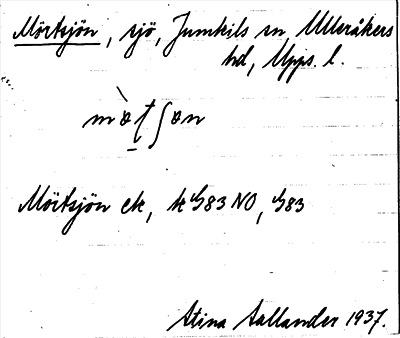 Mörtsjön, sjö, Jumkils sn, Ulleråkers
hd, Upps. l.
Mörtsjön ek, k 583 NO, 583
Stina Aallander 1937.